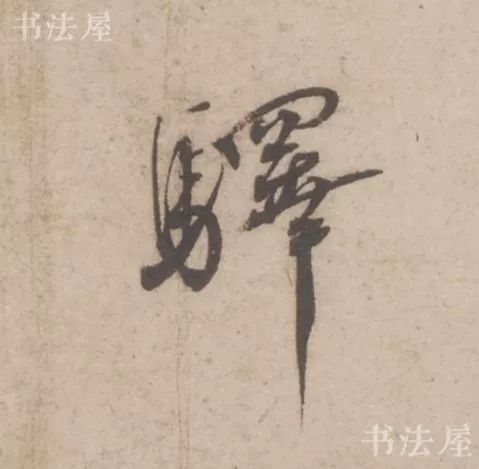 书法屋
驛
书法屋